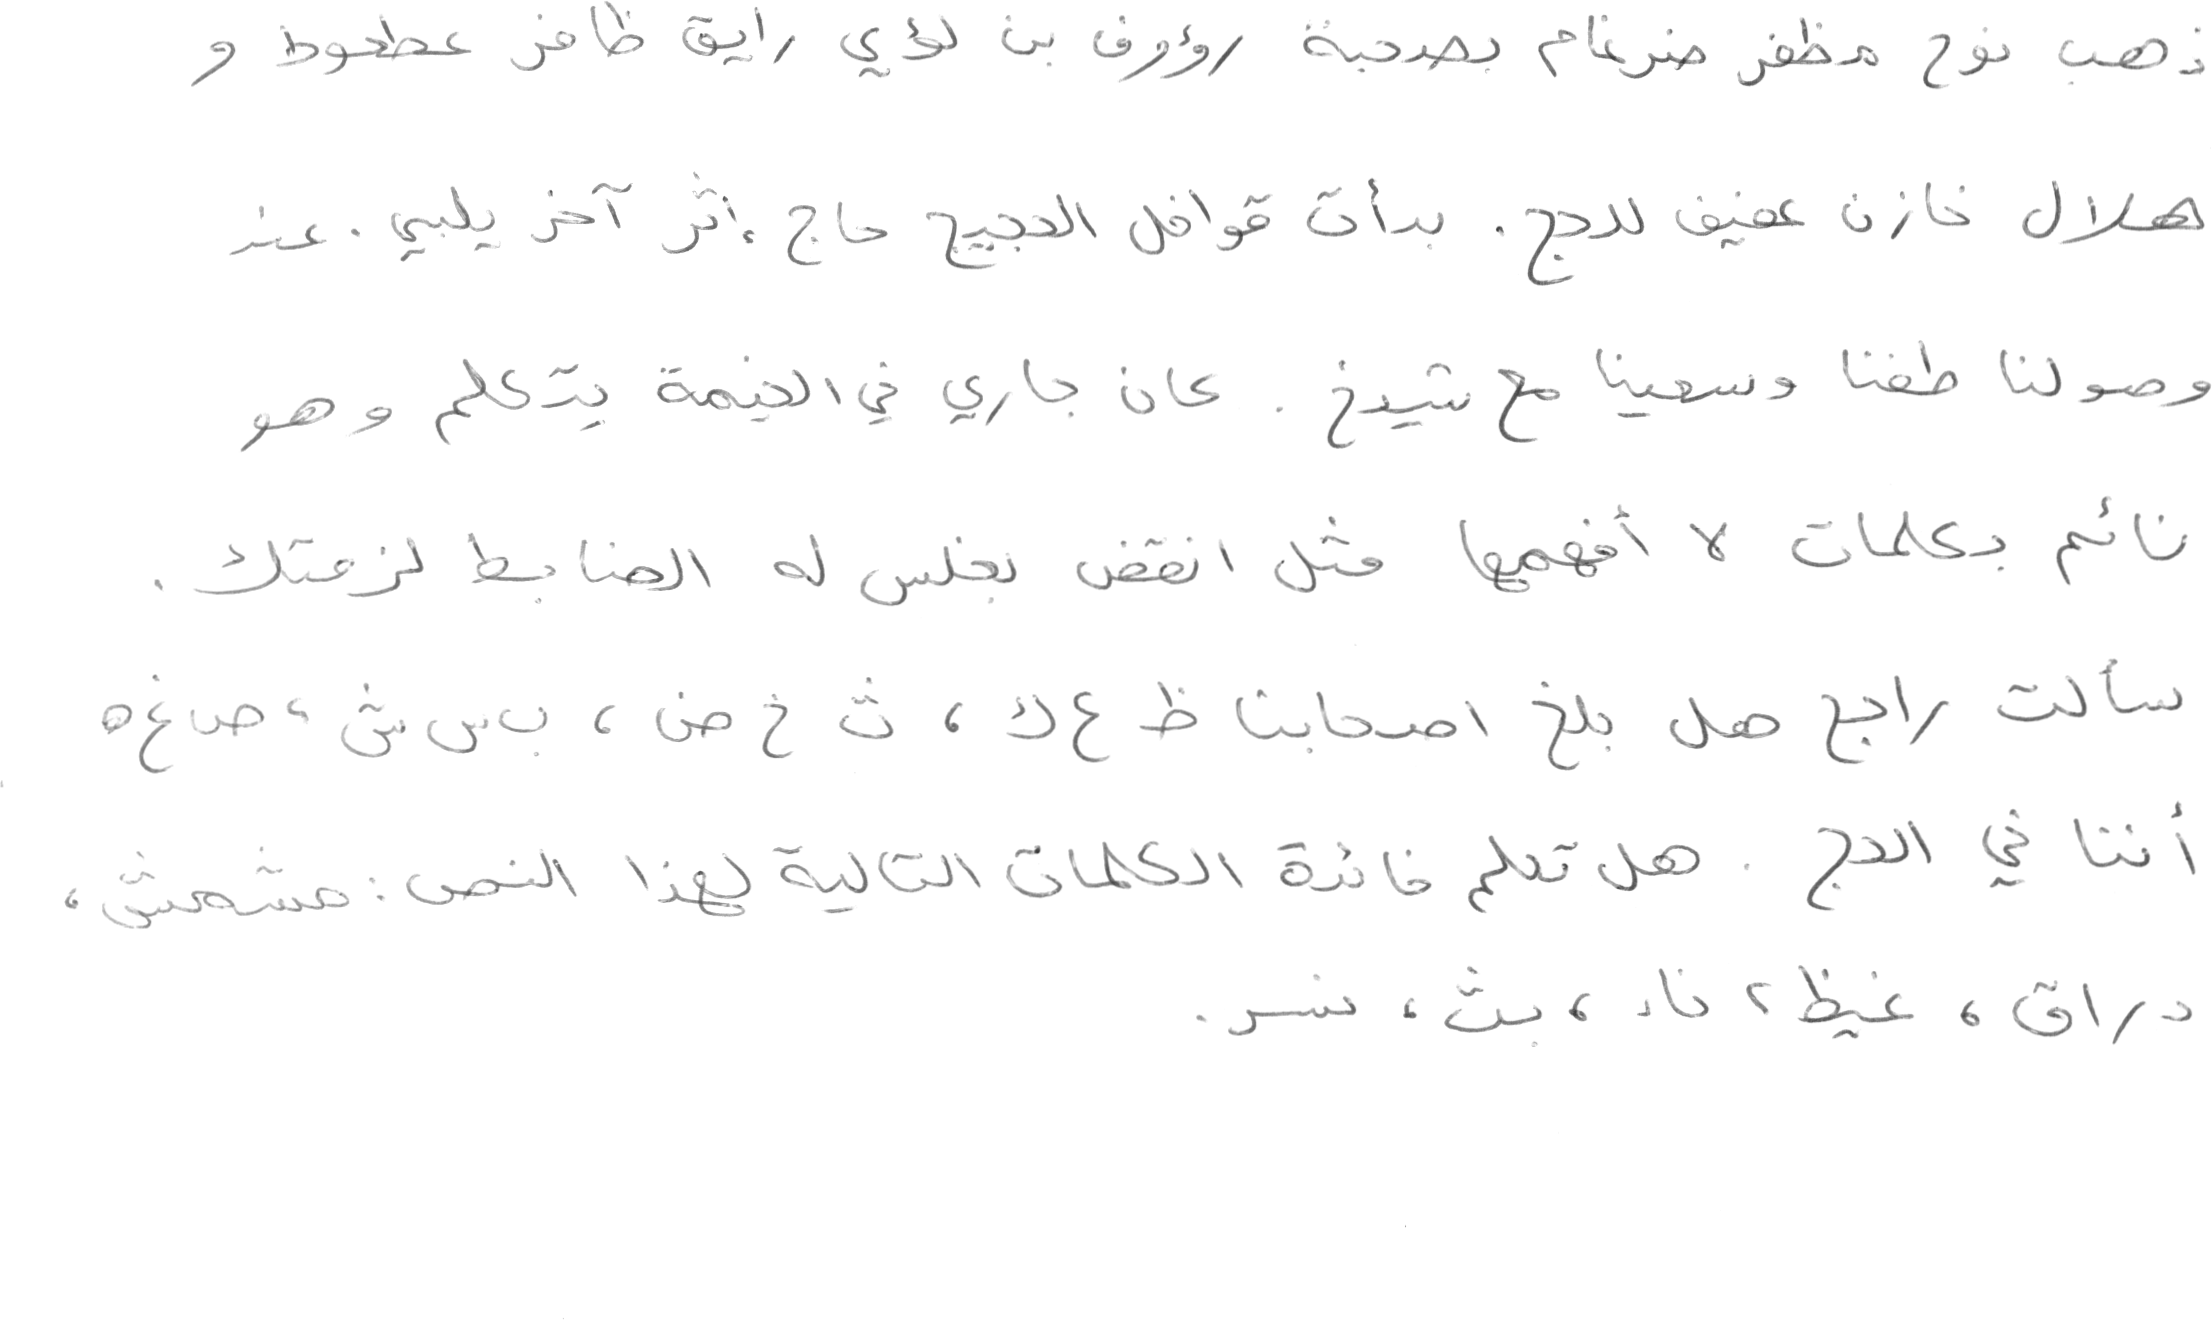 ذهب نوح مظفر ضرغام بصحبة رؤوف بن لؤي رايق ظافر عطعوط و
هلال خازن عفيف للحج. بدأت قوافل الحجيج حاج إثر آخر يلبي. عند
وصولنا طفنا وسعينا مع شيخ. كان جاري في الخيمة يتكلم وهو
نائم بكلمات لا أفهمها مثل انقض بغلس له الضابط لزعتك.
سألت راجح هل بلغ اصحابنا ظ ع ك، ث خ ض، ب س ش، ص غ ه
أننا في الحج. هل تعلم فائدة الكلمات التالية لهذا النص: مشمش،
دراق، غيظ، ناء، بث، نسر.